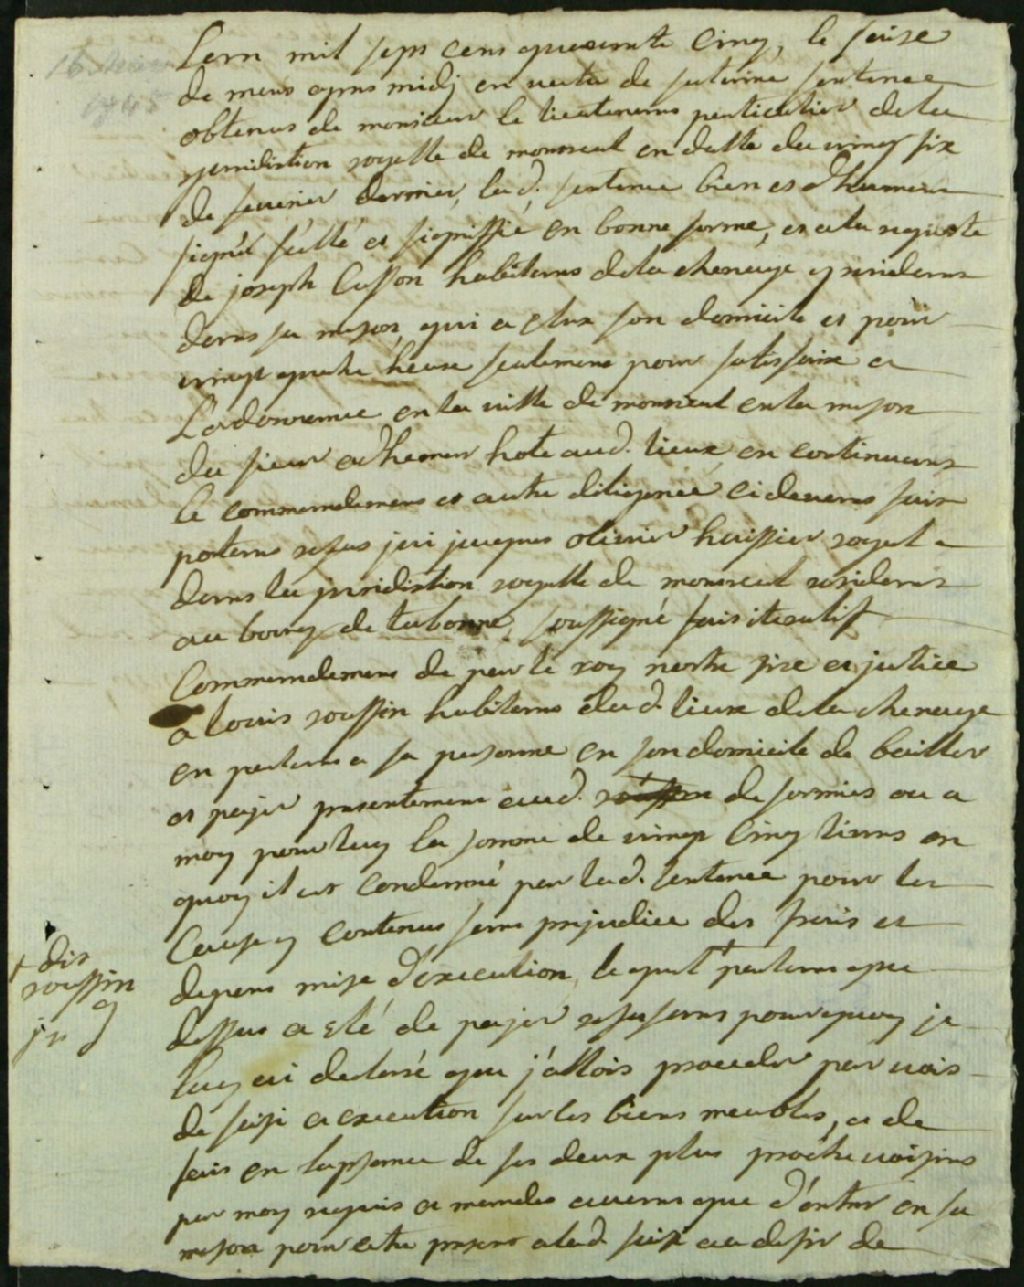 16 mars
1745
Lan mil sept cens quarante Cinq, le seize
de mars apres midj en vertu de sentence
obtenus de monsieur le lieutenans particulier de la
jurisdiction royalle de monreal en datte du vingt six
de feuvrier dernier, lad. sentence bien et dhument
signé séélé et signiffié en bonne forme, et a la requeste
de joseph Cusson habitans de la chenaye y residens
dans sa maison, qui a elus son domicile et pour
vingt quatre heure seulemens pour satisfaire a
Lordonnance en la ville de monreal en la maison
du sieur adhemar hote aud. lieux en continuans
le commendemens et autre diligence cidevens fais
portans refus jai jacques olivier huissier royal
dans la jurisdiction royalle de monreal residens
au bourg de soussigné fais iteratif
Commendemens de par le roy nostre sire et justice
a louis roussin habitans dud. lieux de la chenaye
en parlans a sa personne en son domicile de bailler
et payer presentemens aud. de formies ou a
moy pour luy la somme de vingt Cinq livres en
quoy il est Condamné par lad. sentence pour les
Causes y contenus sans prejudice des frais et
depens mise d'execution, lequel parlans que
dessus a été de payer refusans pourquoy je
luy ai declaré que j'allois proceder par vois
de saisi et execution sur les biens meubles, et de
fais en la presence de ses deux plus proche voisins
par moy requis et mandes avans que d'entrer en sa
maison pour etre presens a lad. saisi au desir de
+ dis
roussin